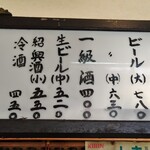 ビール(大)七八〇
〃(中)六三〇
一級酒四〇〇
生ビール(中)五二〇
紹興酒(小)五五〇
冷酒 四五〇